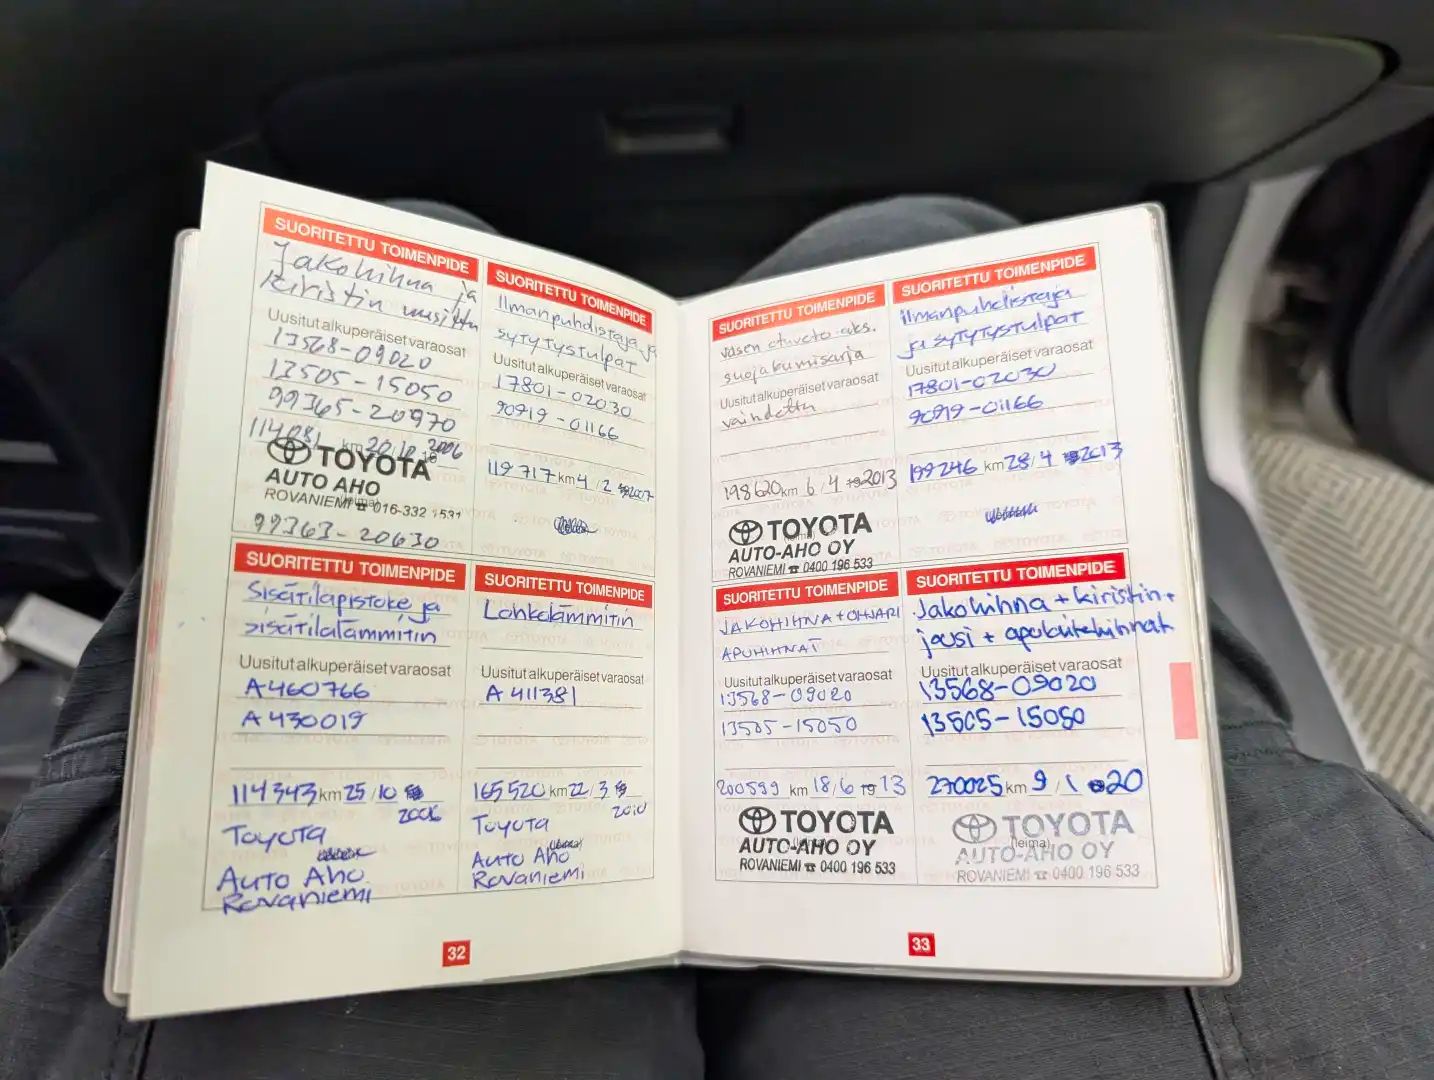 SUORITETTU TOIMENPIDE
Jakohihna ja
kiristin uusittu
Uusitut alkuperäiset varaosat
13568-09020
13505-15050
99365-20970
114081 km 20/10 2006
TOYOTA
AUTO AHO
ROVANIEMI ☎ 016-332 1531
99363-20630
SUORITETTU TOIMENPIDE
Ilmanpuhdistaja ja
sytytystulpat
Uusitut alkuperäiset varaosat
17801-02030
90919-01166
119717 km 4/2 2007
SUORITETTU TOIMENPIDE
Sisätilapistoke ja
sisätilalämmitin
Uusitut alkuperäiset varaosat
A460766
A430019
114343 km 25/10
2006
Toyota
Auto Aho
Rovaniemi
SUORITETTU TOIMENPIDE
Lohkolämmitin
Uusitut alkuperäiset varaosat
A 411381
165520 km 22/3
2010
Toyota
Auto Aho
Rovaniemi
32
SUORITETTU TOIMENPIDE
vasen etuveto-aks.
suojakumisarja
Uusitut alkuperäiset varaosat
vaihdettu
198620 km 6/4 2013
TOYOTA
AUTO-AHO OY
ROVANIEMI ☎ 0400 196 533
SUORITETTU TOIMENPIDE
ilmanpuhdistaja
ja sytytystulpat
Uusitut alkuperäiset varaosat
17801-02030
90919-01166
199246 km 28/4 2013
SUORITETTU TOIMENPIDE
JAKOHIHNA + OHJARI
APUHIHNAT
Uusitut alkuperäiset varaosat
13568-09020
13505-15050
200599 km 18/6 19 13
TOYOTA
AUTO-AHO OY
(leima)
ROVANIEMI ☎ 0400 196 533
SUORITETTU TOIMENPIDE
Jakohihna + kiristin +
jousi + apulaitehihnat
Uusitut alkuperäiset varaosat
13568-09020
13505-15050
270025 km 9/1 20
TOYOTA
(leima)
AUTO-AHO OY
ROVANIEMI ☎ 0400 196 533
33